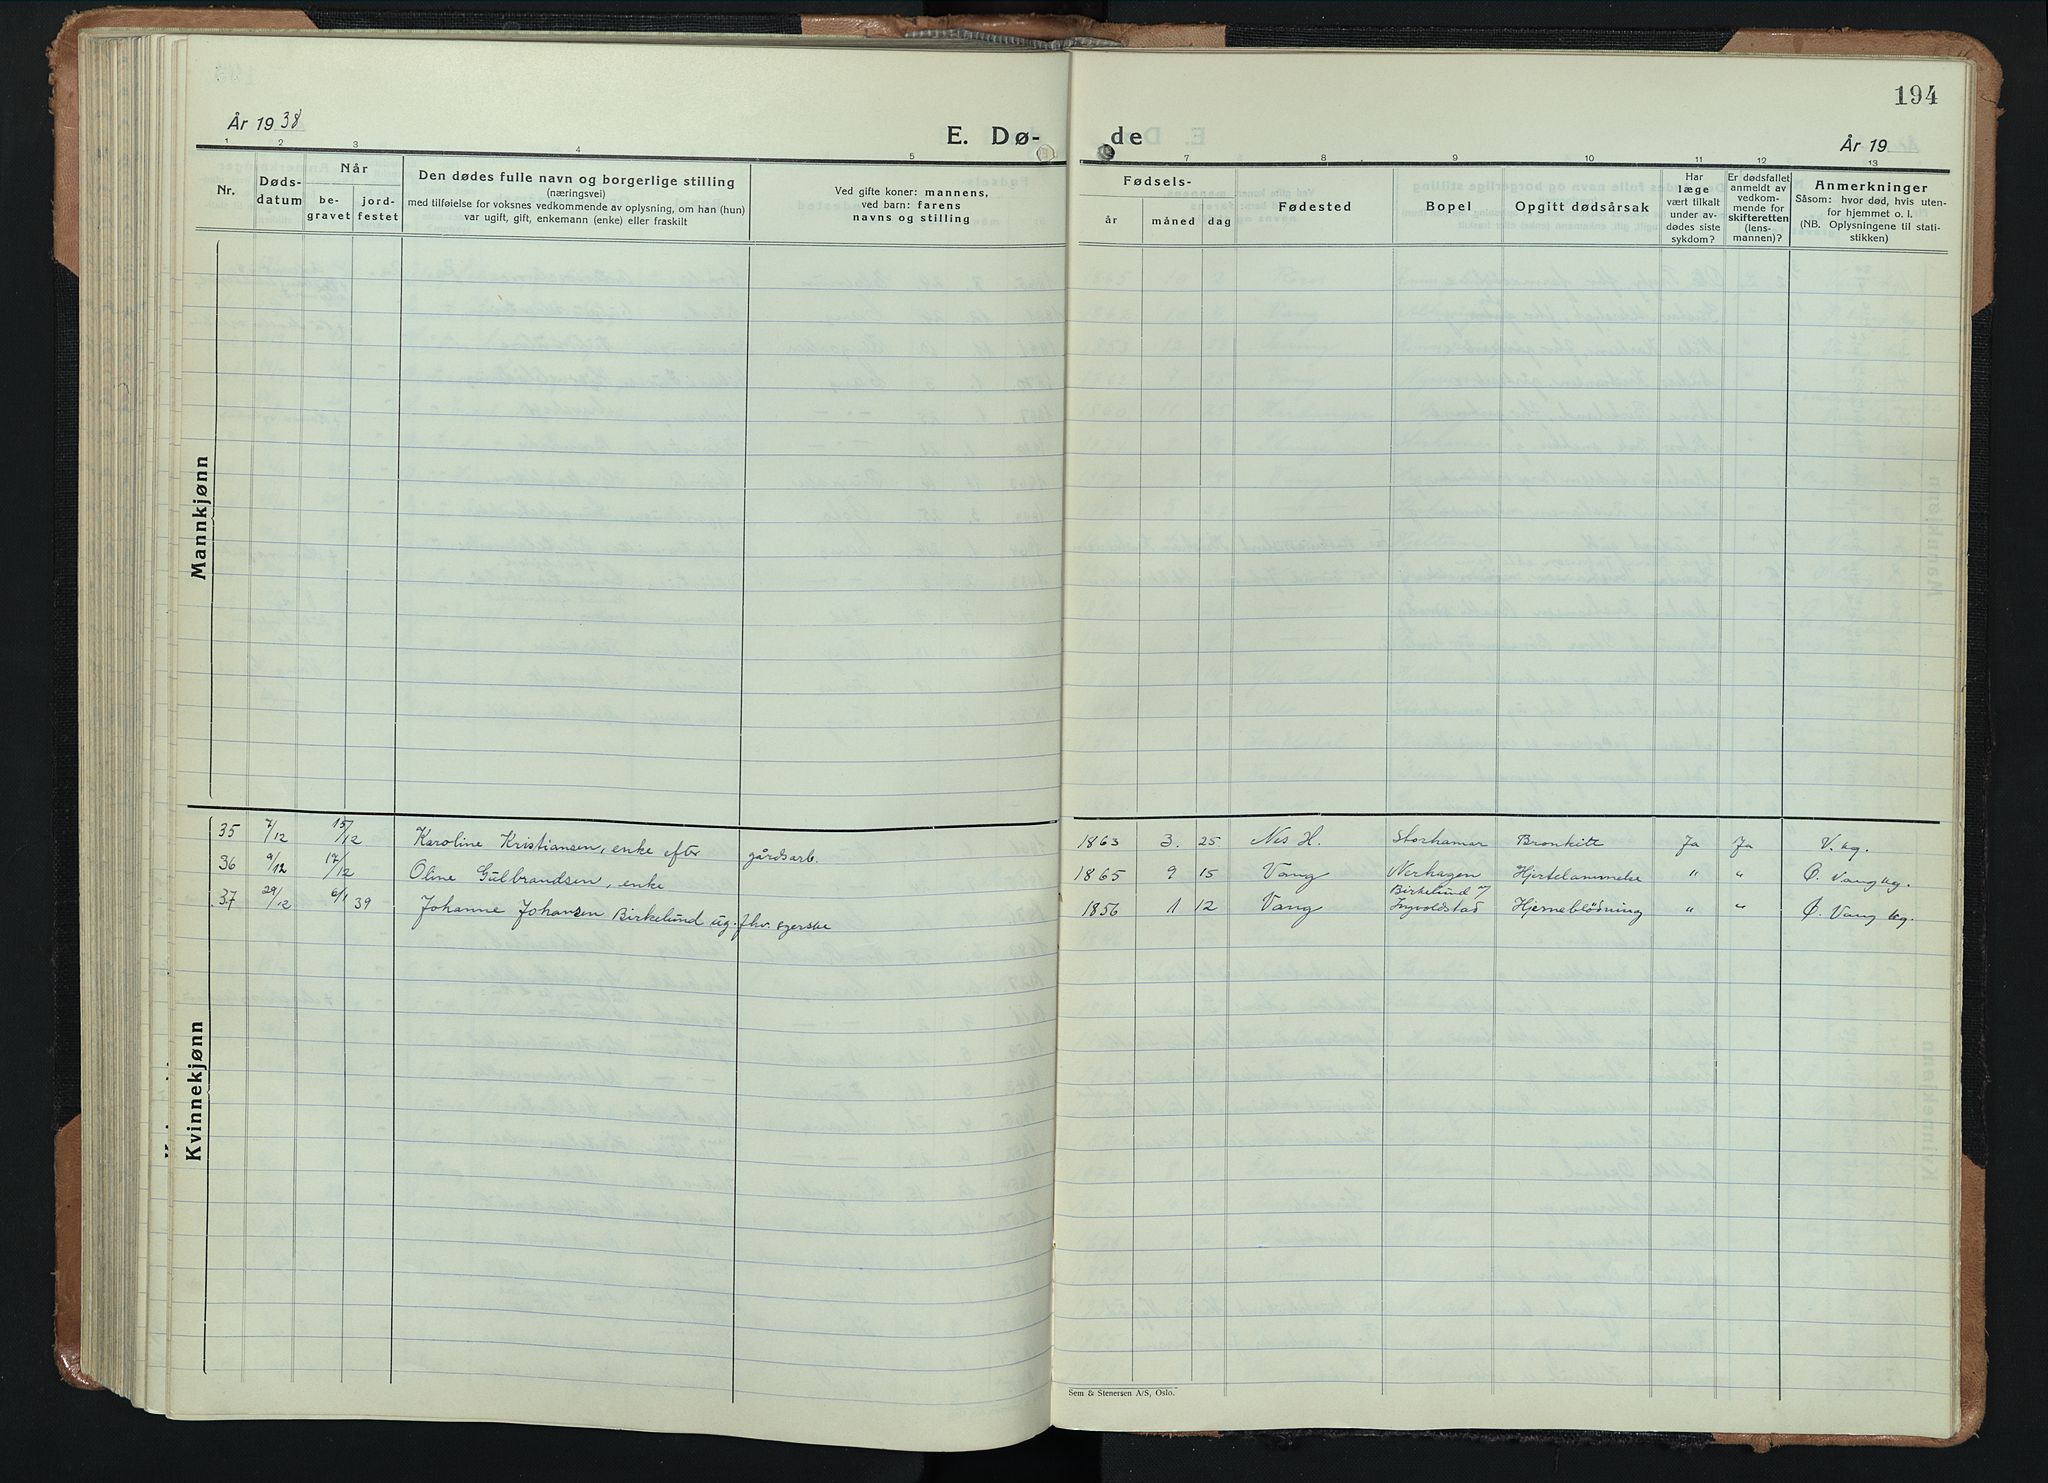 194
År 1938
E. Dø-
de
År 19
1 2 3 4 5 7 8 9 10 11 12 13
Nr.
Døds-
datum
Når
be-
gravet
jord-
festet
Den dødes fulle navn og borgerlige stilling
(næringsvei)
med tilføielse for voksnes vedkommende av oplysning, om han (hun)
var ugift, gift, enkemann (enke) eller fraskilt
Ved gifte koner: mannens,
ved barn: farens
navns og stilling
Fødsels-
år måned dag
Fødested
Bopel
Opgitt dødsårsak
Har
læge
vært tilkalt
under av-
dødes siste
sykdom?
Er dødsfallet
anmeldt av
vedkom-
mende for
skifteretten
(lens-
mannen)?
Anmerkninger
Såsom: hvor død, hvis uten-
for hjemmet o. l.
(NB. Oplysningene til stati-
stikken)
Mannkjønn
Kvinnekjønn
35 7/12 15/12 Karoline Kristiansen, enke efter gårdsarb. 1863 3. 25 Nes H. Storhamar Bronkitt Ja Ja V. kg.
36 9/12 17/12 Oline Gulbrandsen, enke 1865 9 15 Vang Nerhagen Hjertelammelse " " Ø. Vang kg.
37 29/12 6/1 39 Johanne Johansen Birkelund ug. fhv. syerske 1856 11 12 Vang Birkelund u/
Ingvoldstad Hjerneblödning " " Ø. Vang kg.
Sem & Stenersen A/S, Oslo.